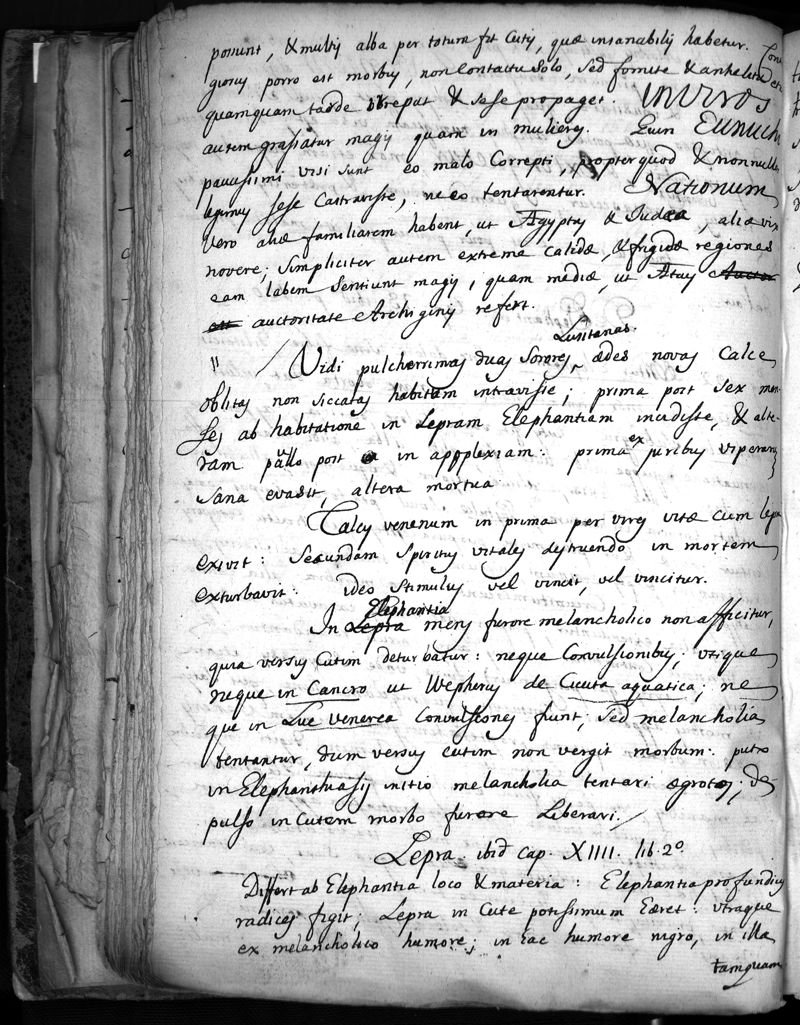 possunt, & multis alba per totum fit Cutis, quæ insanabilis habetur. Conta
giosus porro est morbus, non Contactu Solo, Sed fomite & anhelitu etia
quamquam tarde obrepat & sese propaget. IN VIROS
autem grassatur magis quam in mulieres. Quin EUNUCHI
paucissimi visi sunt eo malo Correpti, propter quod & nonnulli
legimus sese Castravisse, ne eo tentarentur. NATIONUM
vero aliæ familiarem habent, ut Ægyptus & Judæa, aliæ vix
novere; Simpliciter autem extreme calidæ, & frigidæ regiones
eam labem sentiunt magis, quam mediæ, ut Ætius
auctoritate Archiginis refert.
Lusitanas
" / Vidi pulcherrimas duas Sorores, ædes novas Calce
oblitas non siccatas habitatum intravisse; prima post sex men-
ses ab habitatione in Lepram Elephantiam incidisse, & alte-
ram paullo post in apoplexiam: prima ex juribus viperarum
Sana evasit, altera mortua
Calcis venenum in prima per vires vitæ cum lepra
exivit: Secundam Spiritus vitales destruendo in mortem
exturbavit: ideo Stimulus vel vincit, vel vincitur.
Elephantia
In Lepra mens furore melancholico non afficitur,
quia versus Cutim deturbatur: neque Convulsionibus; utique
neque in Cancro ut Wepherus de Cicuta aquatica; ne
que in Lue venerea Convulsiones fiunt; Sed melancholia
tentantur, dum versus cutim non vergit morbum: puto
in Elephanthiasis initio melancholia tentari ægrotos; de
pulso in Cutem morbo furore Liberari. /
Lepra. ibid Cap. XIIII. lib. 2º.
Differt ab Elephantia loco & materia: Elephantia profundius
radices figit; Lepra in Cute potissimum hæret: utraque
ex melancholico humore; in hac humore nigro, in illa
tamquam